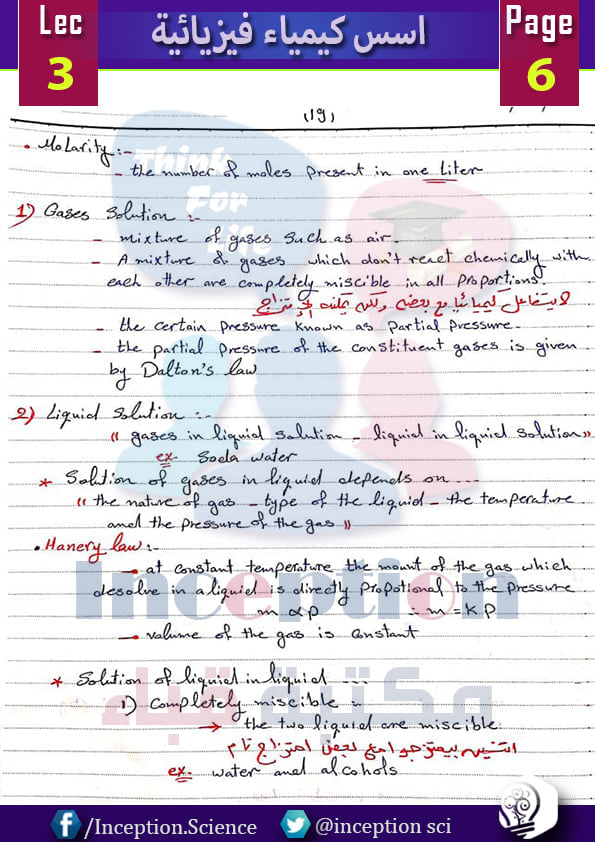 Lec
3
اسس كيمياء فيزيائية
Page
6
(19)
• Molarity:-
- the number of moles present in one Liter
1) Gases Solution :-
- mixture of gases such as air.
- A mixture of gases which don't react chemically with
each other are completely miscible in all proportions.
لا يتفاعل كيميائيا مع بعضه ولكنه يمكنه الإمتزاج
- the certain pressure known as Partial Pressure.
- the partial pressure of the constituent gases is given
by Dalton's law
2) Liquid Solution :-
(( gases in liquid solution - liquid in liquid solution ))
ex Soda water
* Solution of gases in liquid depends on ...
(( the nature of gas - type of the liquid - the temperature
and the pressure of the gas ))
• Hanery law:-
- at constant temperature the mount of the gas which
desolve in a liquid is directly propotional to the pressure
m α p ∴ m = K P
- volume of the gas is constant
* Solution of liquid in liquid ...
1) Completely miscible :-
→ the two liquid are miscible
اتنين بيمتزجوا مع بعض امتزاج تام
ex. water and alcohols
Think
For
Life
Inception
مكتبة قباء
/Inception.Science
@inception sci